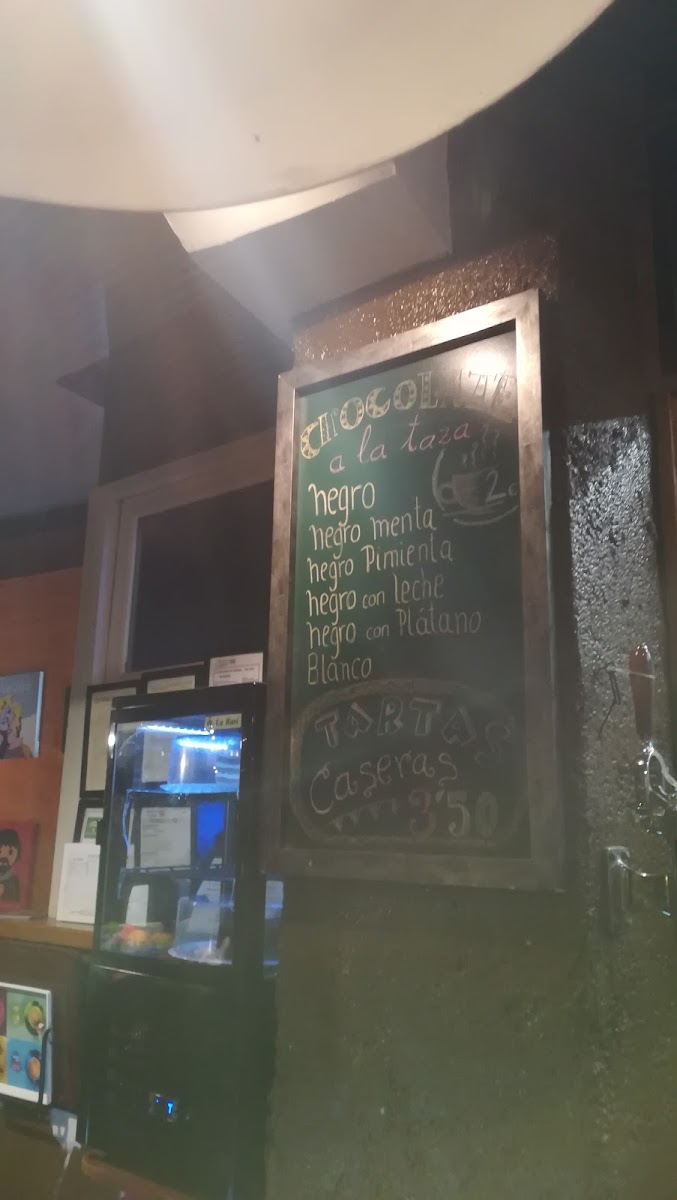 CHOCOLATE
a la taza
2€
negro
negro menta
negro Pimienta
negro con leche
negro con Plátano
Blanco
TARTAS
Caseras
3'50